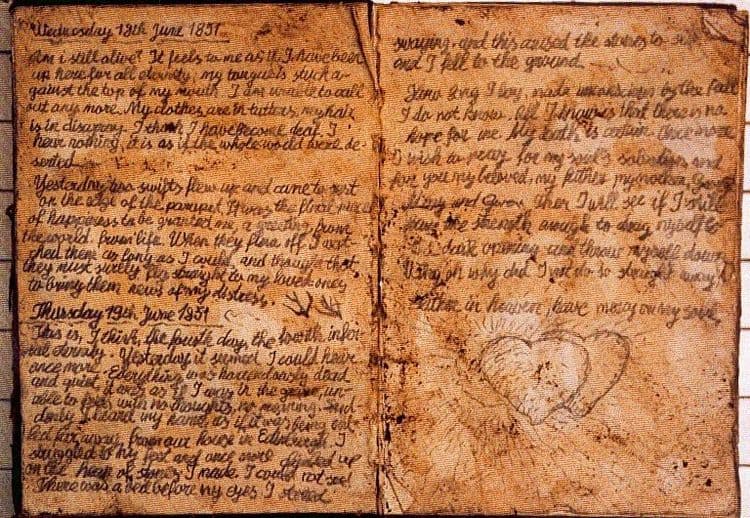 Wednesday 18th June 1851.
Am i still alive? It feels to me as if I have been
up here for all eternity; my tongue is stuck a-
gainst the top of my mouth. I am unable to call
out any more. My clothes are in tatters, my hair
is in disarray. I think I have become deaf. I
hear nothing, it is as if the whole world were de-
serted.
Yesterday two swifts flew up and came to rest
on the edge of the parapet. It was the final
of happiness to be granted me, a greeting from
the world. from life. When they flew off I wat-
ched them as long as I could, and thought that
they must surely fly straight to my loved ones
to bring them news of my distress.
Thursday 19th. June 1851
This is, I think, the fourth day, the fourth infer-
nal eternity. Yesterday it seemed I could hear
once more. Everything was horrendously dead
and quiet, it was as if I was in the grave, un-
able to feel, with no thoughts, no meaning. Sud-
denly I heard my name, as if it was being cal-
led far away, from our house in Edinburgh. I
struggled to my feet and once more climbed up
on the heap of stones I made. I could not see!
There was a red before my eyes I stood
swaying, and this caused the stones to
and I fell to the ground.
How long I lay, made unconscious by the fall
I do not know. All I know is that there is no
hope for me. My death is certain. Once more
I wish to pray for my soul's salvation, and
for you my beloved, my father my mother,
and Gwen. Then I will see if I still
have the strength enough to drag myself to
dark opening and throw myself down
Why, oh why did I not do so straight away?
Father in heaven, have mercy on my soul.